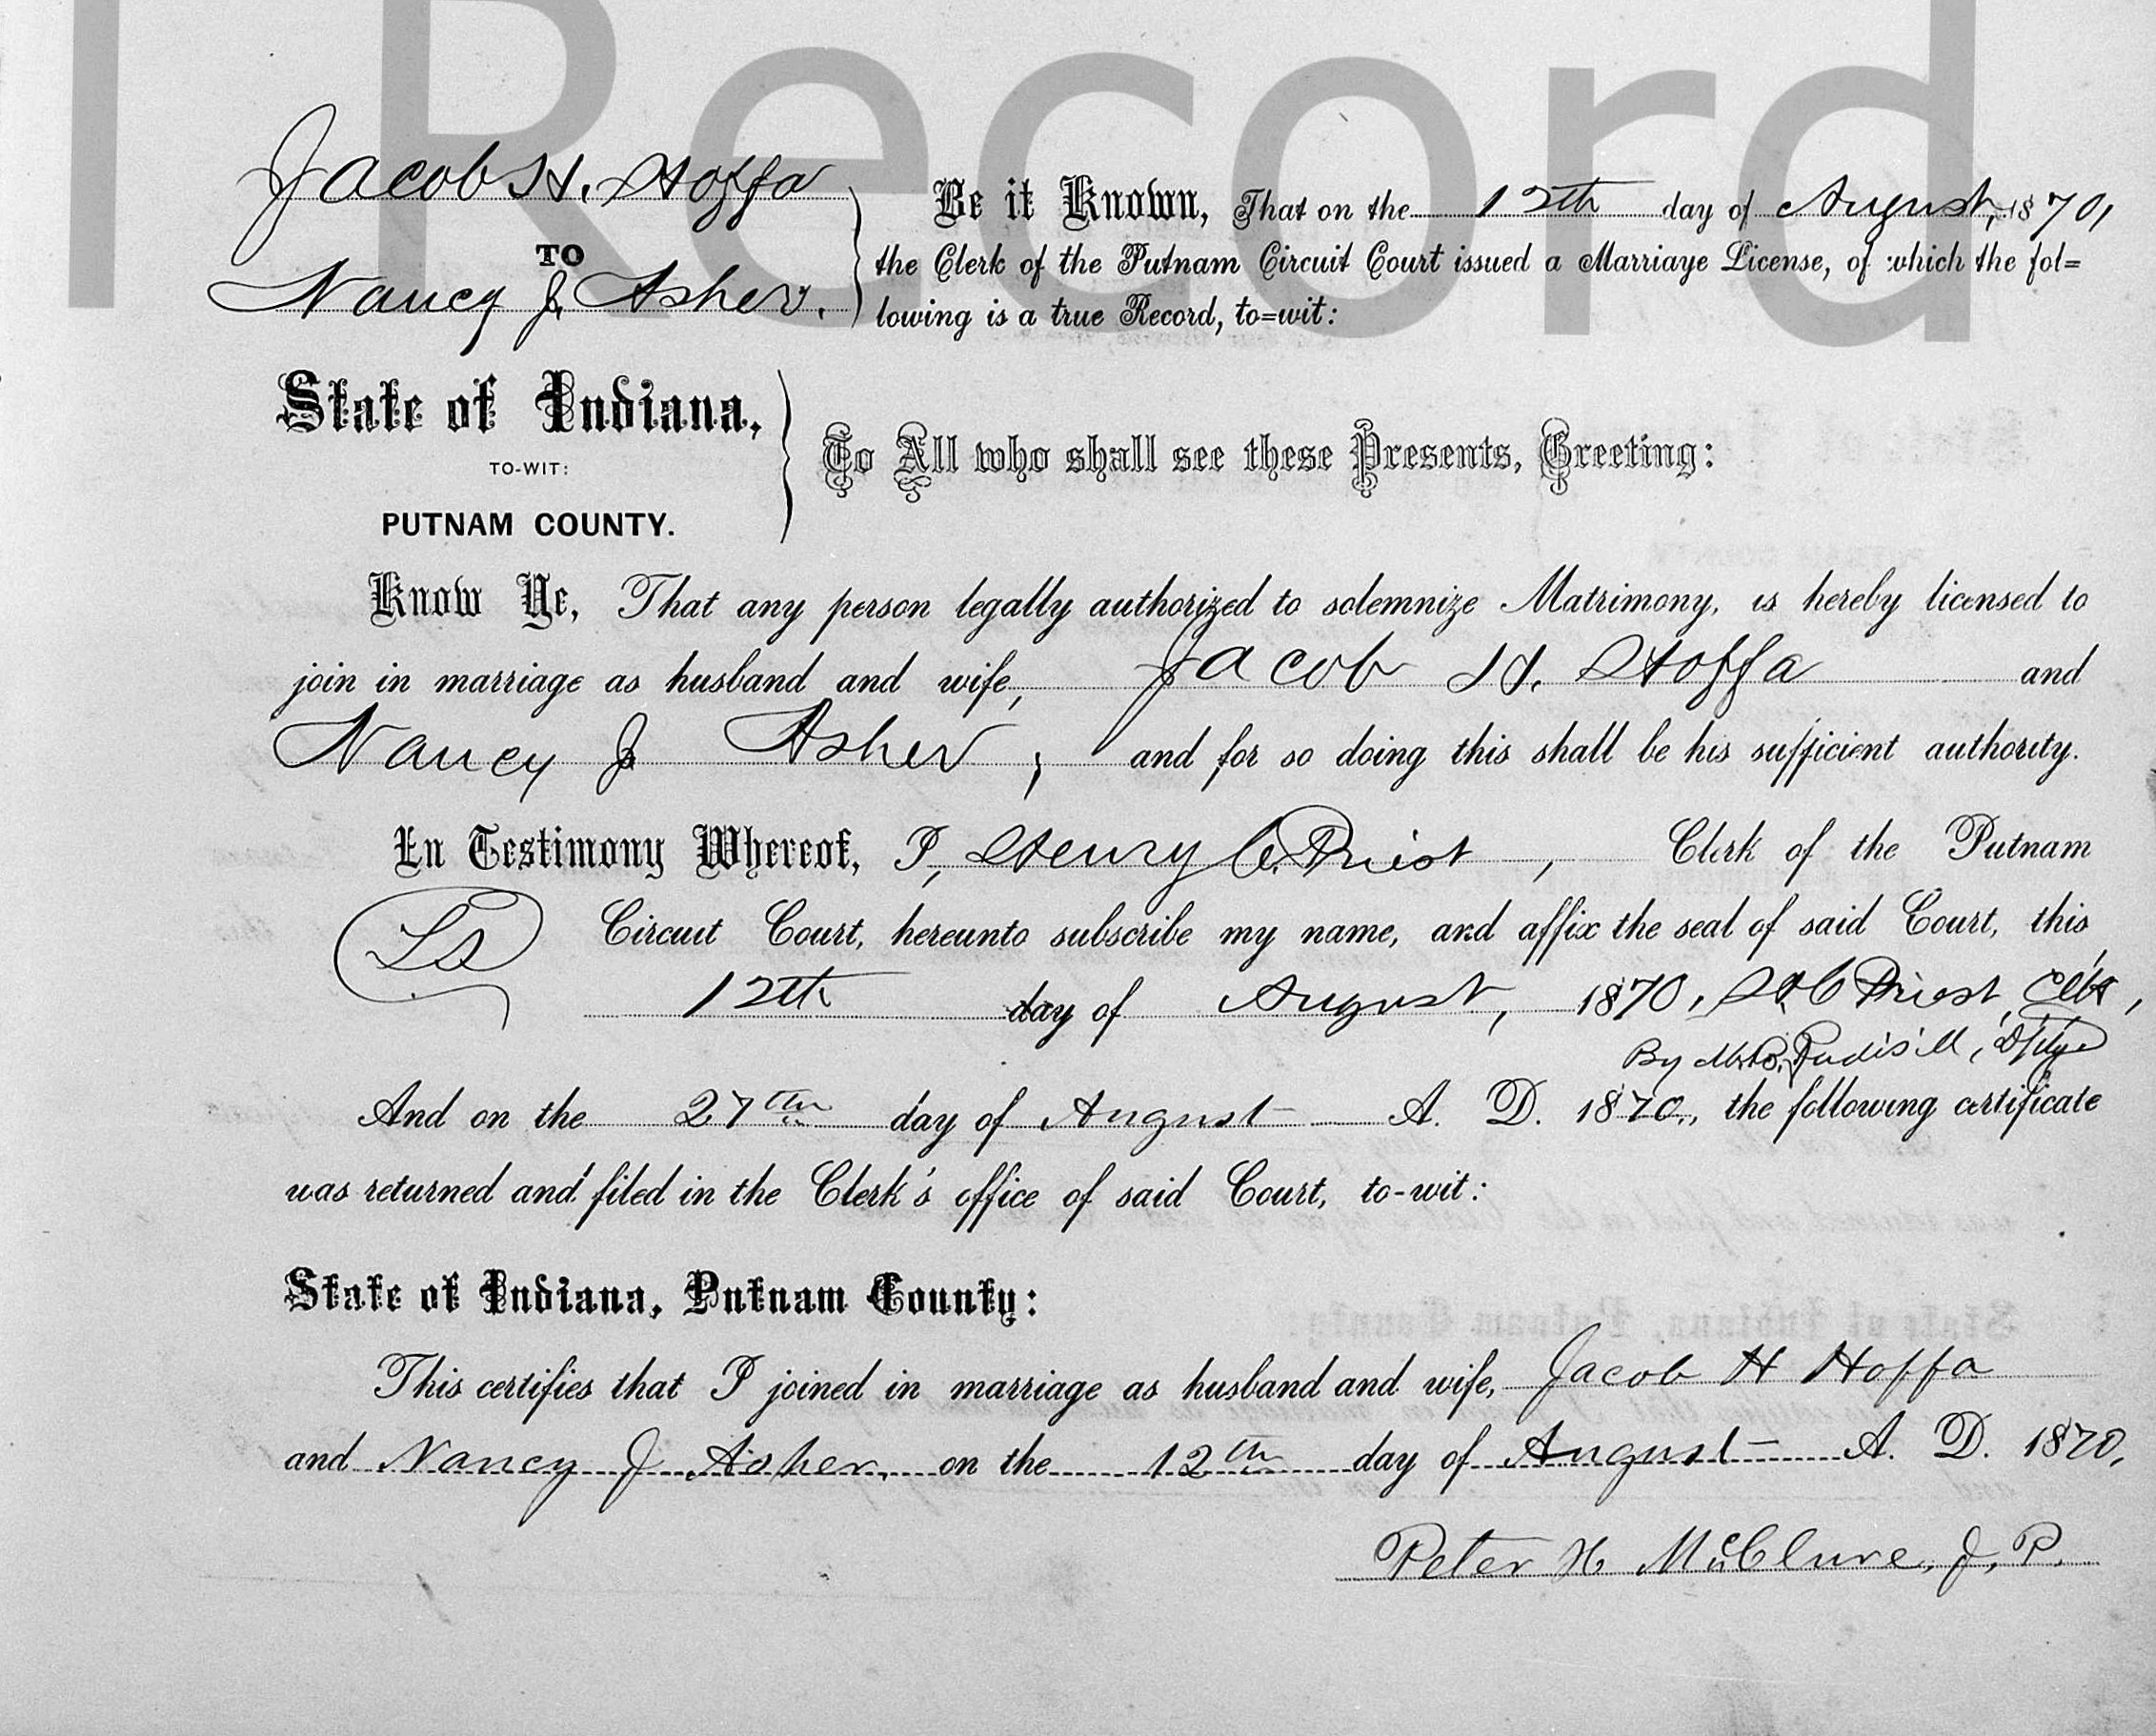 l Record
Jacob H. Hoffa
TO
Nancy J. Asher.
Be it Known, That on the 12th day of August, 1870,
the Clerk of the Putnam Circuit Court issued a Marriage License, of which the fol=
lowing is a true Record, to=wit:
State of Indiana,
TO-WIT:
PUTNAM COUNTY.
To All who shall see these Presents, Greeting:
Know Ye, That any person legally authorized to solemnize Matrimony, is hereby licensed to
join in marriage as husband and wife, Jacob H. Hoffa and
Nancy J Asher, and for so doing this shall be his sufficient authority.
In Testimony Whereof, I, Henry C. Priest, Clerk of the Putnam
LS Circuit Court, hereunto subscribe my name, and affix the seal of said Court, this
12th day of August, 1870, H. C Priest, Clk,
By Rudisill, D'pty
And on the 27th day of August A. D. 1870, the following certificate
was returned and filed in the Clerk's office of said Court, to-wit:
State of Indiana, Putnam County:
This certifies that I joined in marriage as husband and wife, Jacob H Hoffa
and Nancy J Asher, on the 12th day of August A. D. 1870,
Peter H McClure, J. P.